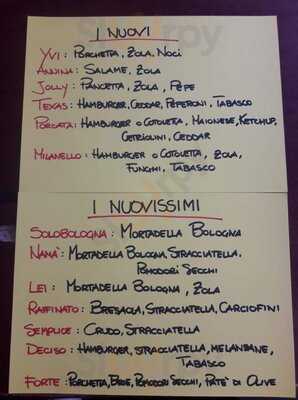 I NUOVI
YVI: PORCHETTA, ZOLA, NOCI
ANNINA: SALAME, ZOLA
JOLLY: PANCETTA, ZOLA, PEPE
TEXAS: HAMBURGER, CEDDAR, PEPERONI, TABASCO
PORCATA: HAMBURGER O COTOLETTA, MAIONESE, KETCHUP,
CETRIOLINI, CEDDAR
MILANELLO: HAMBURGER O COTOLETTA, ZOLA,
FUNGHI, TABASCO
I NUOVISSIMI
SOLOBOLOGNA: MORTADELLA BOLOGNA
NAMA': MORTADELLA BOLOGNA, STRACCIATELLA,
POMODORI SECCHI
LEI: MORTADELLA BOLOGNA, ZOLA
RAFFINATO: BRESAOLA, STRACCIATELLA, CARCIOFINI
SEMPLICE: CRUDO, STRACCIATELLA
DECISO: HAMBURGER, STRACCIATELLA, MELANZANE,
TABASCO
FORTE: PORCHETTA, BRIE, POMODORI SECCHI, PATE' DI OLIVE